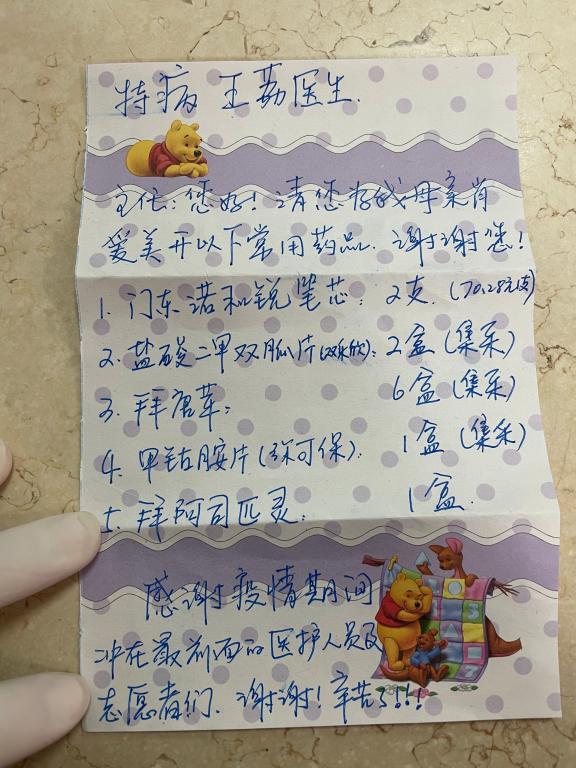 特病 王荔医生.
主任:您好!请您给我母亲肖
爱美开以下常用药品.谢谢您!
1. 门东诺和锐笔芯: 2支. (70.28元/支)
2. 盐酸二甲双胍片(双乐欣): 2盒(集采)
3. 拜唐苹: 6盒(集采)
4. 甲钴胺片(弥可保). 1盒(集采)
5. 拜阿司匹灵: 1盒.
感谢疫情期间
冲在最前面的医护人员及
志愿者们.谢谢!辛苦了!!!